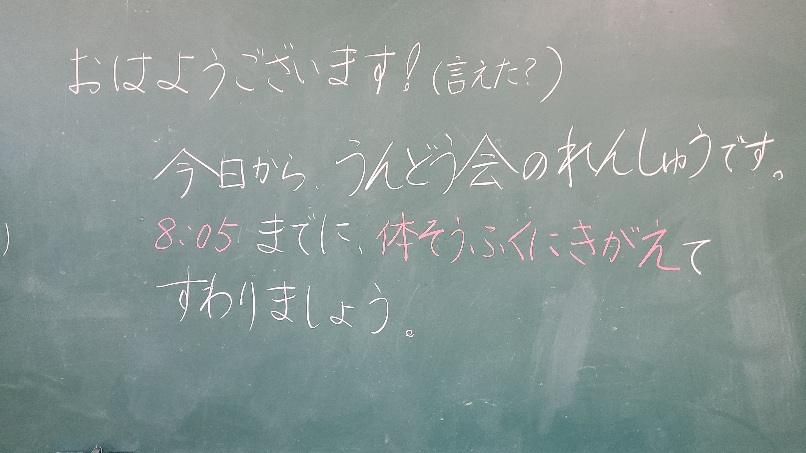 おはようございます！（言えた？）
今日から、うんどう会のれんしゅうです。
8：05までに、体そうふくにきがえて
すわりましょう。
）